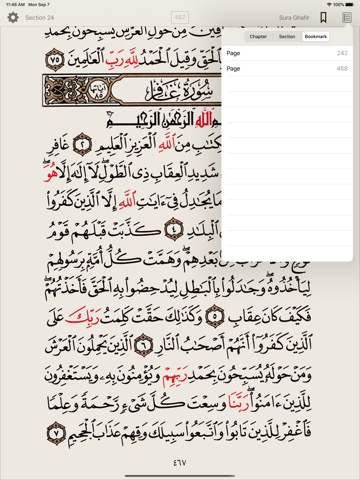 11:46 AM Mon Sep 7
100%
Section 24
467
Sura Ghafir
Chapter
Section
Bookmark
Page 242
Page 468
يُسَبِّحُونَ بِحَمْدِ
وَقِيلَ الْحَمْدُ لِلَّهِ رَبِّ الْعَالَمِينَ ٧٥
سُورَةُ غَافِرٍ
اللَّهِ الرَّحْمَٰنِ الرَّحِيمِ
مِنَ اللَّهِ الْعَزِيزِ الْعَلِيمِ ٢ غَافِرِ
شَدِيدِ الْعِقَابِ ذِي الطَّوْلِ لَا إِلَٰهَ إِلَّا هُوَ
مَا يُجَادِلُ فِي آيَاتِ اللَّهِ إِلَّا الَّذِينَ كَفَرُوا
٤ كَذَّبَتْ قَبْلَهُمْ قَوْمُ
مِنْ بَعْدِهِمْ وَهَمَّتْ كُلُّ أُمَّةٍ بِرَسُولِهِمْ
لِيَأْخُذُوهُ وَجَادَلُوا بِالْبَاطِلِ لِيُدْحِضُوا بِهِ الْحَقَّ فَأَخَذْتُهُمْ
فَكَيْفَ كَانَ عِقَابِ ٥ وَكَذَٰلِكَ حَقَّتْ كَلِمَتُ رَبِّكَ عَلَى
الَّذِينَ كَفَرُوا أَنَّهُمْ أَصْحَابُ النَّارِ ٦ الَّذِينَ يَحْمِلُونَ الْعَرْشَ
وَمَنْ حَوْلَهُ يُسَبِّحُونَ بِحَمْدِ رَبِّهِمْ وَيُؤْمِنُونَ بِهِ وَيَسْتَغْفِرُونَ
لِلَّذِينَ آمَنُوا رَبَّنَا وَسِعْتَ كُلَّ شَيْءٍ رَحْمَةً وَعِلْمًا
فَاغْفِرْ لِلَّذِينَ تَابُوا وَاتَّبَعُوا سَبِيلَكَ وَقِهِمْ عَذَابَ الْجَحِيمِ ٧
٤٦٧